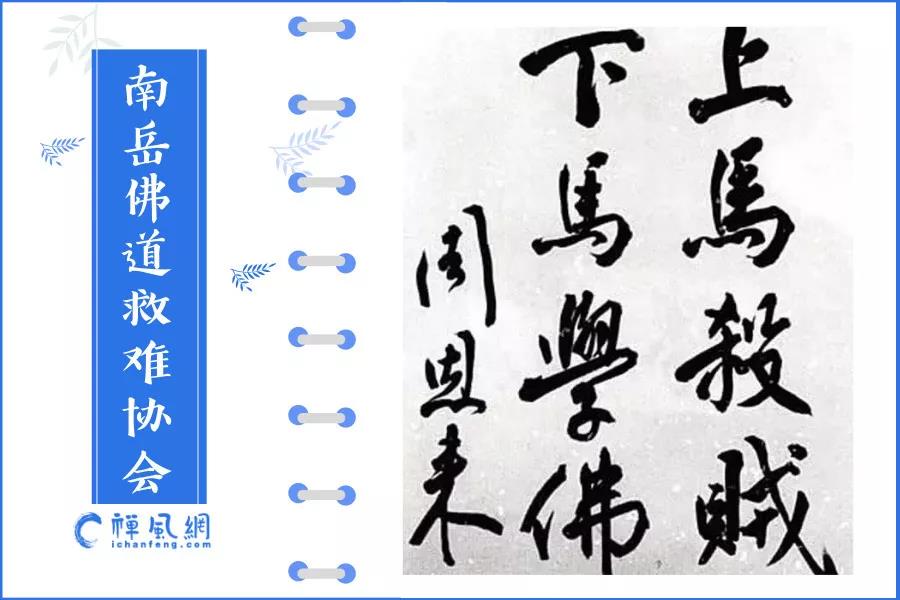 南岳佛道救难协会
禅風網
ichanfeng.com
上馬殺賊
下馬學佛
周恩来